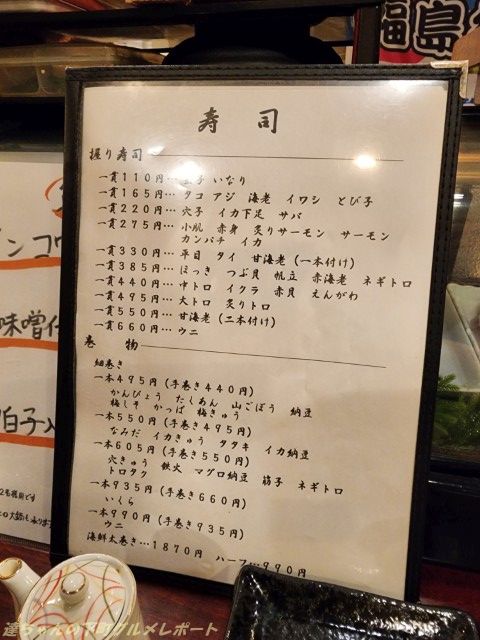 福島
寿司
握り寿司
一貫110円…玉子 いなり
一貫165円…タコ アジ 海老 イワシ とび子
一貫220円…穴子 イカ下足 サバ
一貫275円…小肌 赤身 炙りサーモン サーモン
カンパチ イカ
一貫330円…平目 タイ 甘海老(一本付け)
一貫385円…ほっき つぶ貝 帆立 赤海老 ネギトロ
一貫440円…中トロ イクラ 赤貝 えんがわ
一貫495円…大トロ 炙りトロ
一貫550円…甘海老(二本付け)
一貫660円…ウニ
巻物
細巻き
一本495円(手巻き440円)
かんぴょう たくあん 山ごぼう 納豆
梅しそ かっぱ 梅きゅう
一本550円(手巻き495円)
なみだ イカきゅう タタキ イカ納豆
一本605円(手巻き550円)
穴きゅう 鉄火 マグロ納豆 筋子 ネギトロ
トロタク
一本935円(手巻き660円)
いくら
一本990円(手巻き935円)
ウニ
海鮮太巻き…1870円 ハーフ…990円
味噌
白子入
達ちゃんの下町グルメレポート